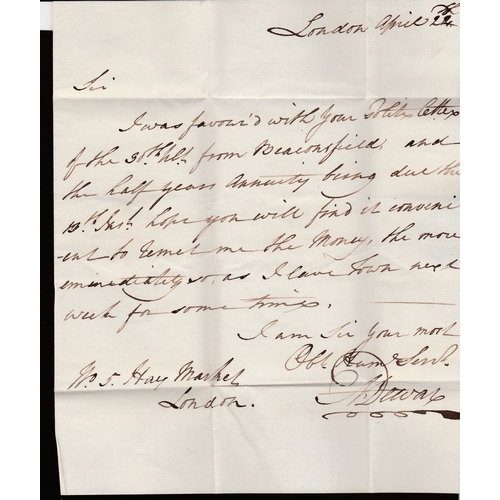 London April 22th
Sir
I was favour'd with your Polite letter
of the 30th Ult. from Beaconsfield, and
the half years Annuity being due the
10th Inst. hope you will find it conveni
-ent to remit me the Money, the more
immediately so, as I leave Town next
week for some time.
I am Sir Your most
Obt. Hume Servt.
Dewar
No 5. Hay Market
London.